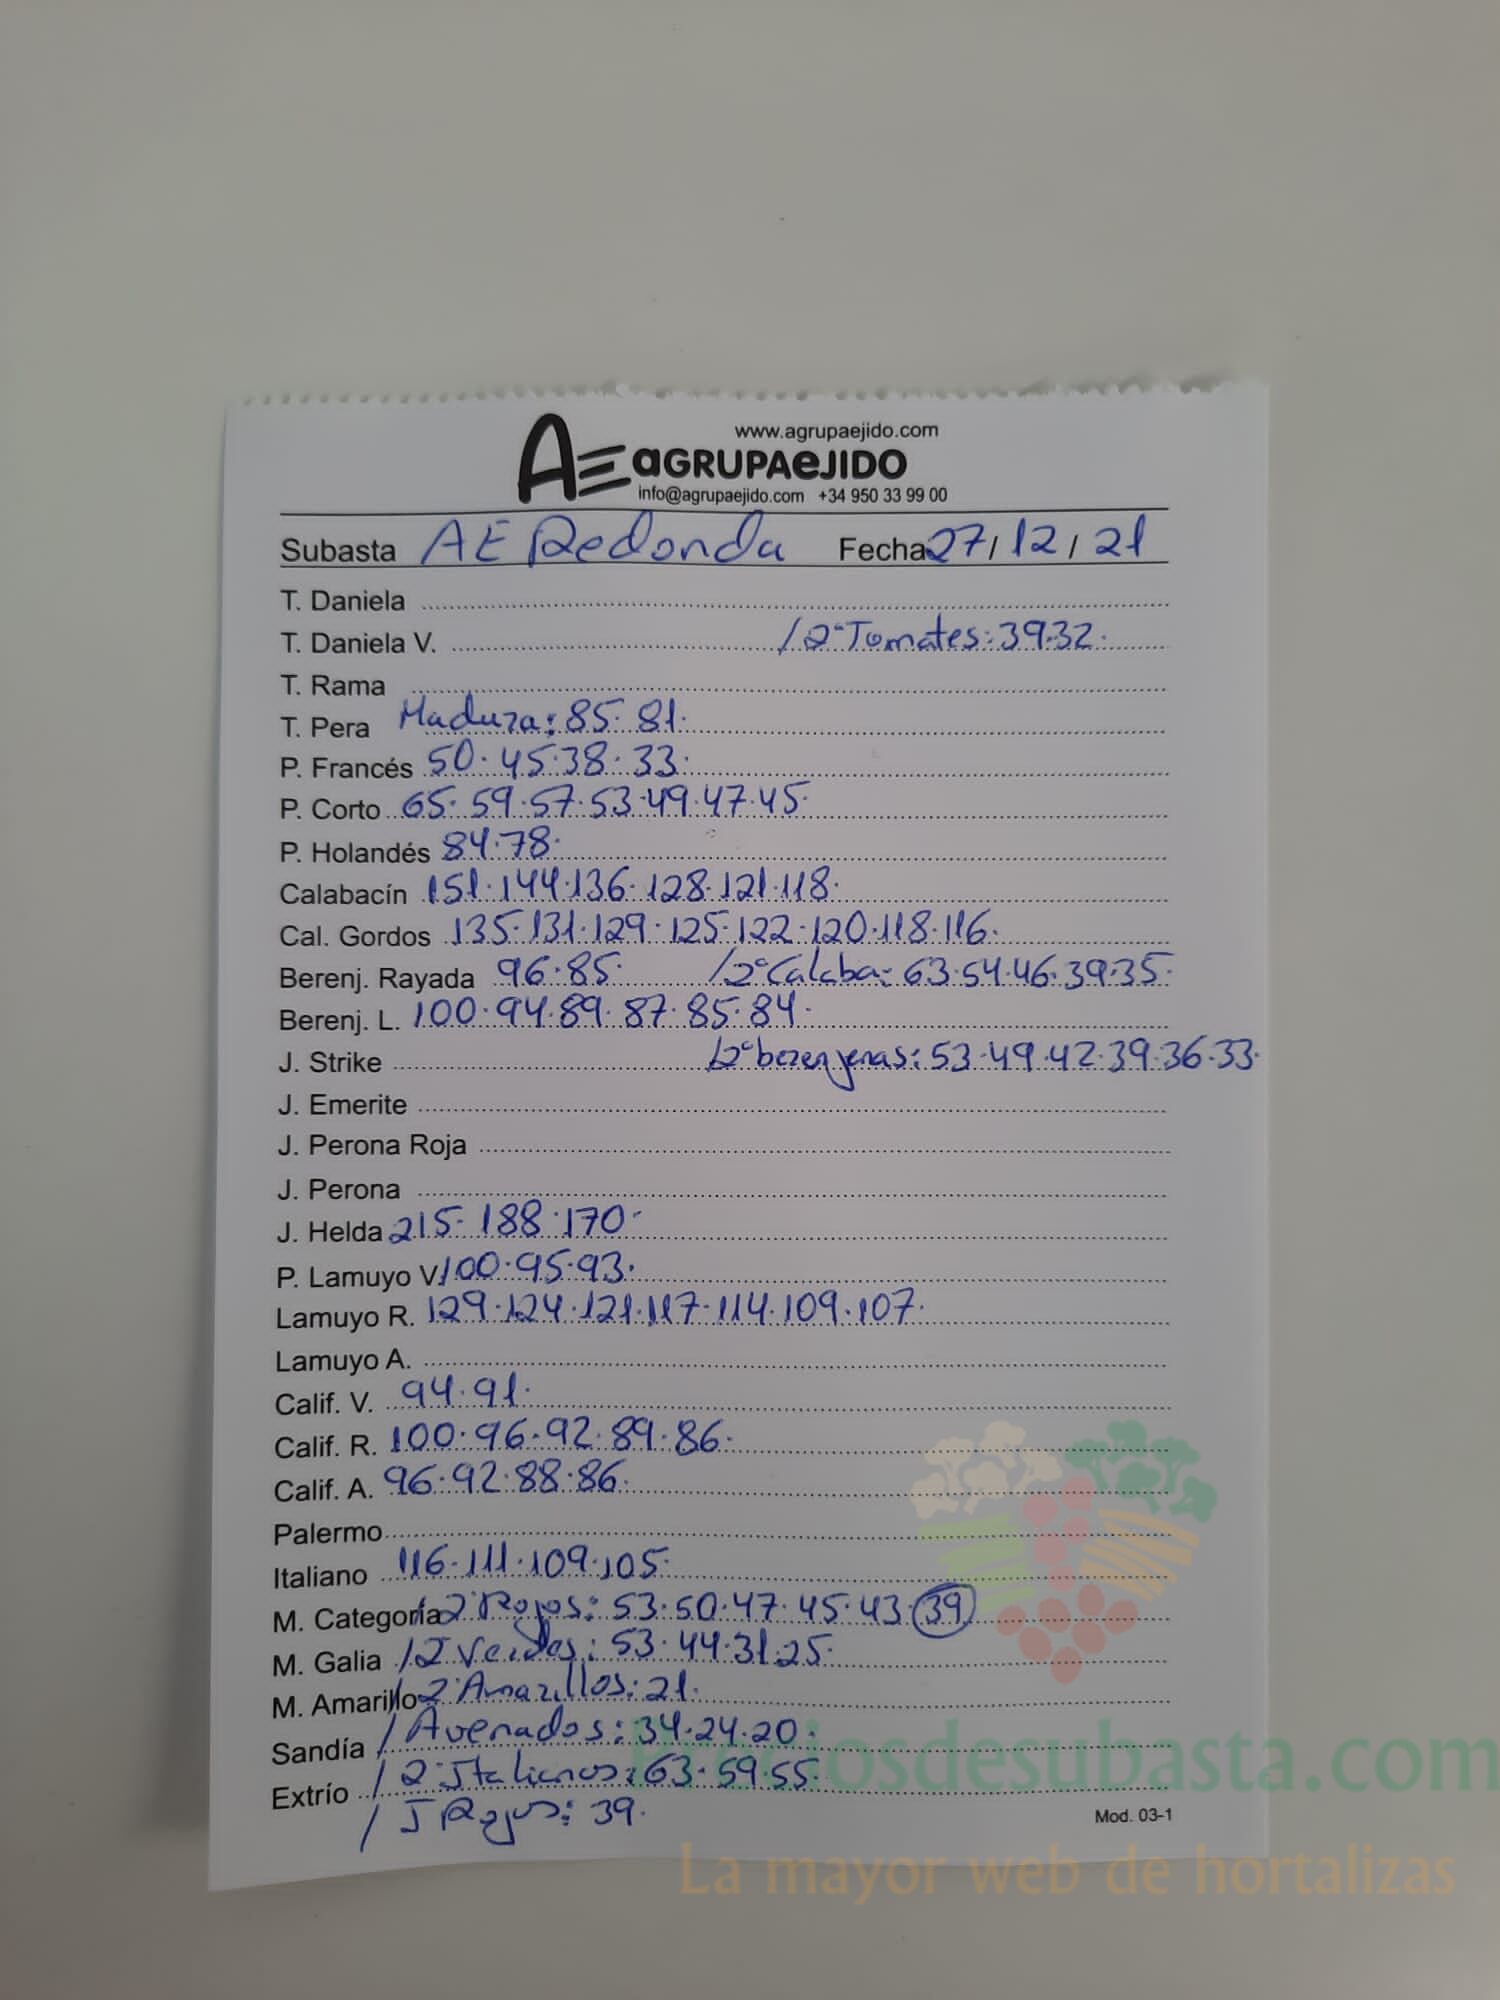 www.agrupaejido.com
AE aGRUPAeJIDO
info@agrupaejido.com +34 950 33 99 00
Subasta AE Redonda Fecha 27/12/21
T. Daniela
T. Daniela V. /2ª Tomates: 39·32·
T. Rama
T. Pera Madura: 85·81·
P. Francés 50·45·38·33·
P. Corto 65·59·57·53·49·47·45·
P. Holandés 84·78·
Calabacín 151·144·136·128·121·118·
Cal. Gordos 135·131·129·125·122·120·118·116·
Berenj. Rayada 96·85· /2ª Calaba: 63·54·46·39·35·
Berenj. L. 100·94·89·87·85·84·
J. Strike /2ª berenjenas: 53·49·42·39·36·33·
J. Emerite
J. Perona Roja
J. Perona
J. Helda 215·188·170·
P. Lamuyo V. 100·95·93·
Lamuyo R. 129·124·121·117·114·109·107·
Lamuyo A.
Calif. V. 94·91·
Calif. R. 100·96·92·89·86·
Calif. A. 96·92·88·86·
Palermo
Italiano 116·111·109·105·
M. Categoría /2ª Rojos: 53·50·47·45·43·39
M. Galia /2 Verdes: 53·44·31·25·
M. Amarillo /2ª Amarillos: 21·
Sandía / Avenados: 34·24·20·
Extrío / 2ª Italianos: 63·59·55·
/ J Rojos: 39·
Mod. 03-1
Preciosdesubasta.com
La mayor web de hortalizas